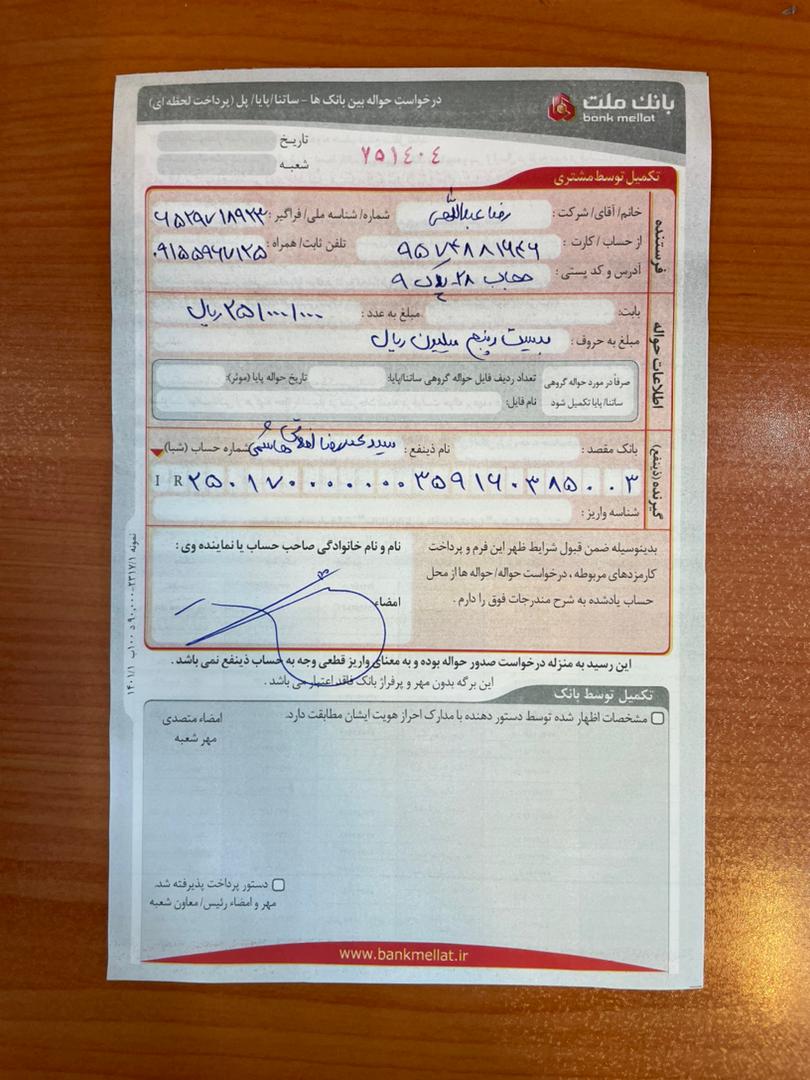 بانک ملت
bank mellat
درخواست حواله بین بانک ها - ساتنا/پایا/ پل (پرداخت لحظه ای)
تاریخ
شعبه
۷۵۱٤۰٤
تکمیل توسط مشتری
فرستنده
خانم/ آقای/ شرکت: رضا عبداللهی شماره/ شناسه ملی/ فراگیر:
از حساب / کارت: تلفن ثابت/ همراه: ۰۹۱۵۵۹۶۷۱۲۵
آدرس و کد پستی: ۲۸ پلاک ۹
اطلاعات حواله
بابت: مبلغ به عدد: ۲۵/۰۰۰/۰۰۰ ریال
مبلغ به حروف: بیست و پنج میلیون ریال
صرفاً در مورد حواله گروهی ساتنا/ پایا تکمیل شود
تعداد ردیف فایل حواله گروهی ساتنا/پایا: تاریخ حواله پایا (موثر):
نام فایل:
گیرنده (ذینفع)
بانک مقصد: نام ذینفع: هاشمی شماره حساب (شبا)
IR ۲۵۰۱۷۰۰۰۰۰۰۰۳۵۹۱۶۰۳۸۵۰۰۳
شناسه واریز:
بدینوسیله ضمن قبول شرایط ظهر این فرم و پرداخت
کارمزدهای مربوطه، درخواست حواله/ حواله ها از محل
حساب یادشده به شرح مندرجات فوق را دارم.
نام و نام خانوادگی صاحب حساب یا نماینده وی:
امضاء
این رسید به منزله درخواست صدور حواله بوده و به معنای واریز قطعی وجه به حساب ذینفع نمی باشد.
این برگه بدون مهر و پرفراژ بانک فاقد اعتبار می باشد.
تکمیل توسط بانک
مشخصات اظهار شده توسط دستور دهنده با مدارک احراز هویت ایشان مطابقت دارد.
امضاء متصدی
مهر شعبه
دستور پرداخت پذیرفته شد.
مهر و امضاء رئیس/ معاون شعبه
www.bankmellat.ir